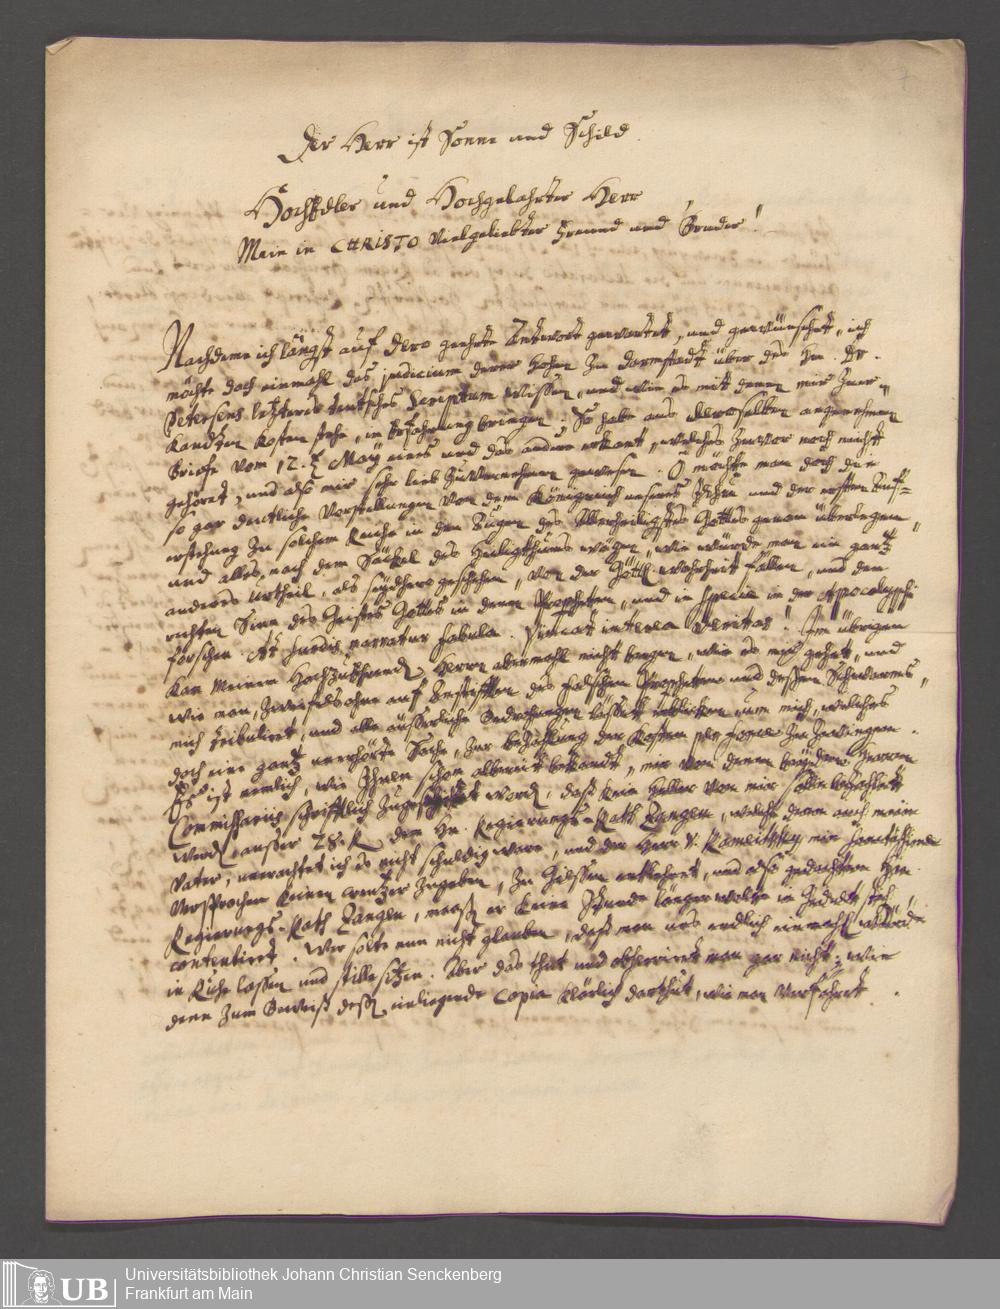 7
Der Herr ist Sonne und Schild
HochEdler und Hochgelahrter Herr
Mein in CHRISTO Vielgeliebter Freund und Bruder!
Nachdeme ich längst auf dero geehrte Antwort gewartet, und gewünschet, ich
möchte doch einmahl das judicium derer Hohen zu Darmstadt über des Hn. Dr.
Petersens letzteres teutsches Scriptum wissen, und wie es mit denen mir zuer-
kandten Kosten stehe, in Erfahrung bringen; So habe aus deroselben angenehmen
Briefe vom 12. May eines und das andere erkant, welches zuvor noch nicht
gehöret, und also mir sehr lieb zuvernehmen gewesen. O möchte man doch die
so gar deutliche Vorstellungen von dem Königreich unseres Jesu und der ersten Auf-
erstehung zu solchem Reiche in den Augen des Allerheiligsten Gottes genau überlegen,
und alles nach dem Säckel des Heiligthums wägen, wie würde man ein gantz
anders Urtheil, als seithero geschehen, von der Göttl. Wahrheit fällen, und den
rechten Sinn des Geistes Gottes in denen Propheten, und in specie in der Apocalypsi
forschen. At surdis narratur fabula. Vincat interea Veritas! Im übrigen
kan Meinem Hochzuehrend. Herrn abermahl nicht bergen, wie es mir gehet, und
wie man, zweifelsohne auf Anstifften des falschen Propheten und dessen Schwarms,
mich tribuliret, und alle äusserliche Bedrohungen lässet erblicken, um mich, welches
doch eine gantz unerhörte Sache, zur bezahlung der Kosten per force zu zwingen.
Es ist nemlich, wie Ihnen schon allbereit bekandt, mir von denen beyden Herren
Commissariis schrifftlich zugeschickt word, daß kein Heller von mir solle bezahlet
werd. ausser 28. R dem Hn. Regierungs-Rath Zangen, welche denn auch mein
Vater, unerachtet ich es nicht schuldig ware, und der Herr V.
versprochen keinen Creutzer zugeben, zu Giessen entlehnet, und also gedachten Hn.
Regierungs-Rath Zangen, maaß er keine Stunde länger wolte in Gedult steh.
contentiret. Wer solte nun nicht glauben, daß man uns endlich einmahl würde
in Ruhe lassen und stille sitzen. Aber das thut und observiret man gar nicht; wie
denn zum Beweiß deß. einliegende Copia klärlich darthut, wie man verfähret.
UB
Universitätsbibliothek Johann Christian Senckenberg
Frankfurt am Main